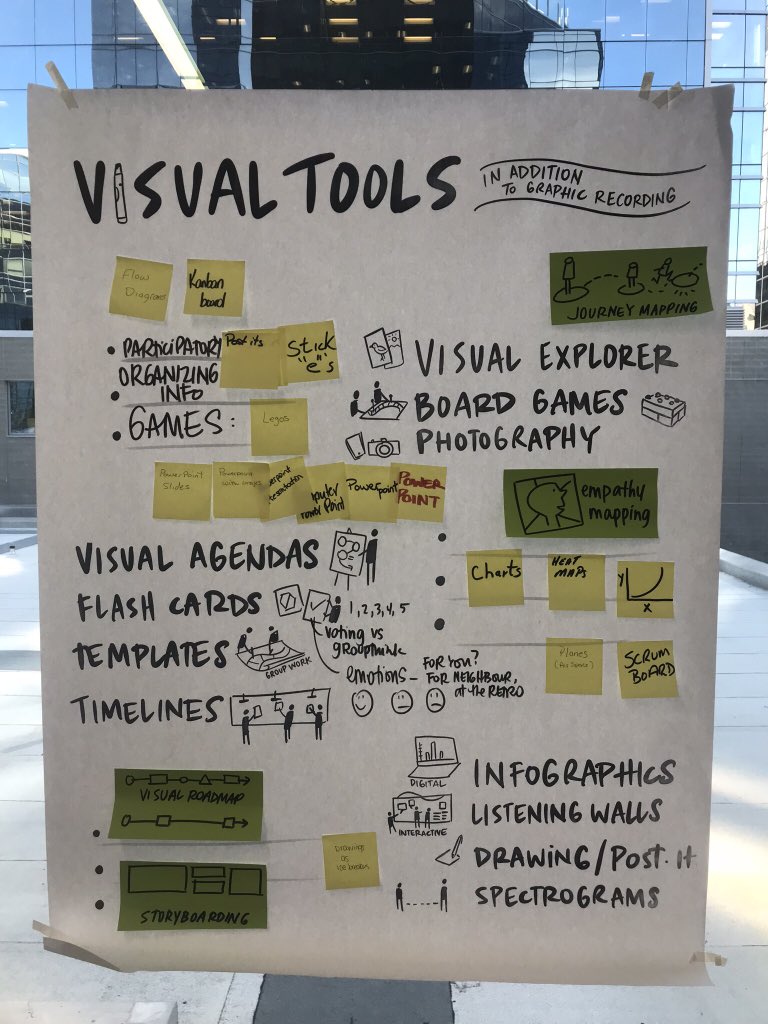 VISUAL TOOLS
IN ADDITION
TO GRAPHIC RECORDING
Flow
Diagrams
Kanban
board
JOURNEY MAPPING
• PARTICIPATORY
Post its
Stick
"e"s
ORGANIZING
• INFO
• GAMES:
Legos
VISUAL EXPLORER
BOARD GAMES
PHOTOGRAPHY
PowerPoint
Slides.
Powerpoint
with images
Power Point
Powerpoint
POWER
POINT
empathy
mapping
VISUAL AGENDAS
FLASH CARDS
1,2,3,4,5
voting vs
groupthink
TEMPLATES
GROUP WORK
emotions –
FOR YOU?
FOR NEIGHBOUR,
at the RETRO
TIMELINES
Charts
HEAT
MAPS
Y
X
Planes
SCRUM
BOARD
VISUAL ROADMAP
STORYBOARDING
Drawings
as
ice breakers
DIGITAL
INFOGRAPHICS
INTERACTIVE
LISTENING WALLS
DRAWING/POST·it
SPECTROGRAMS